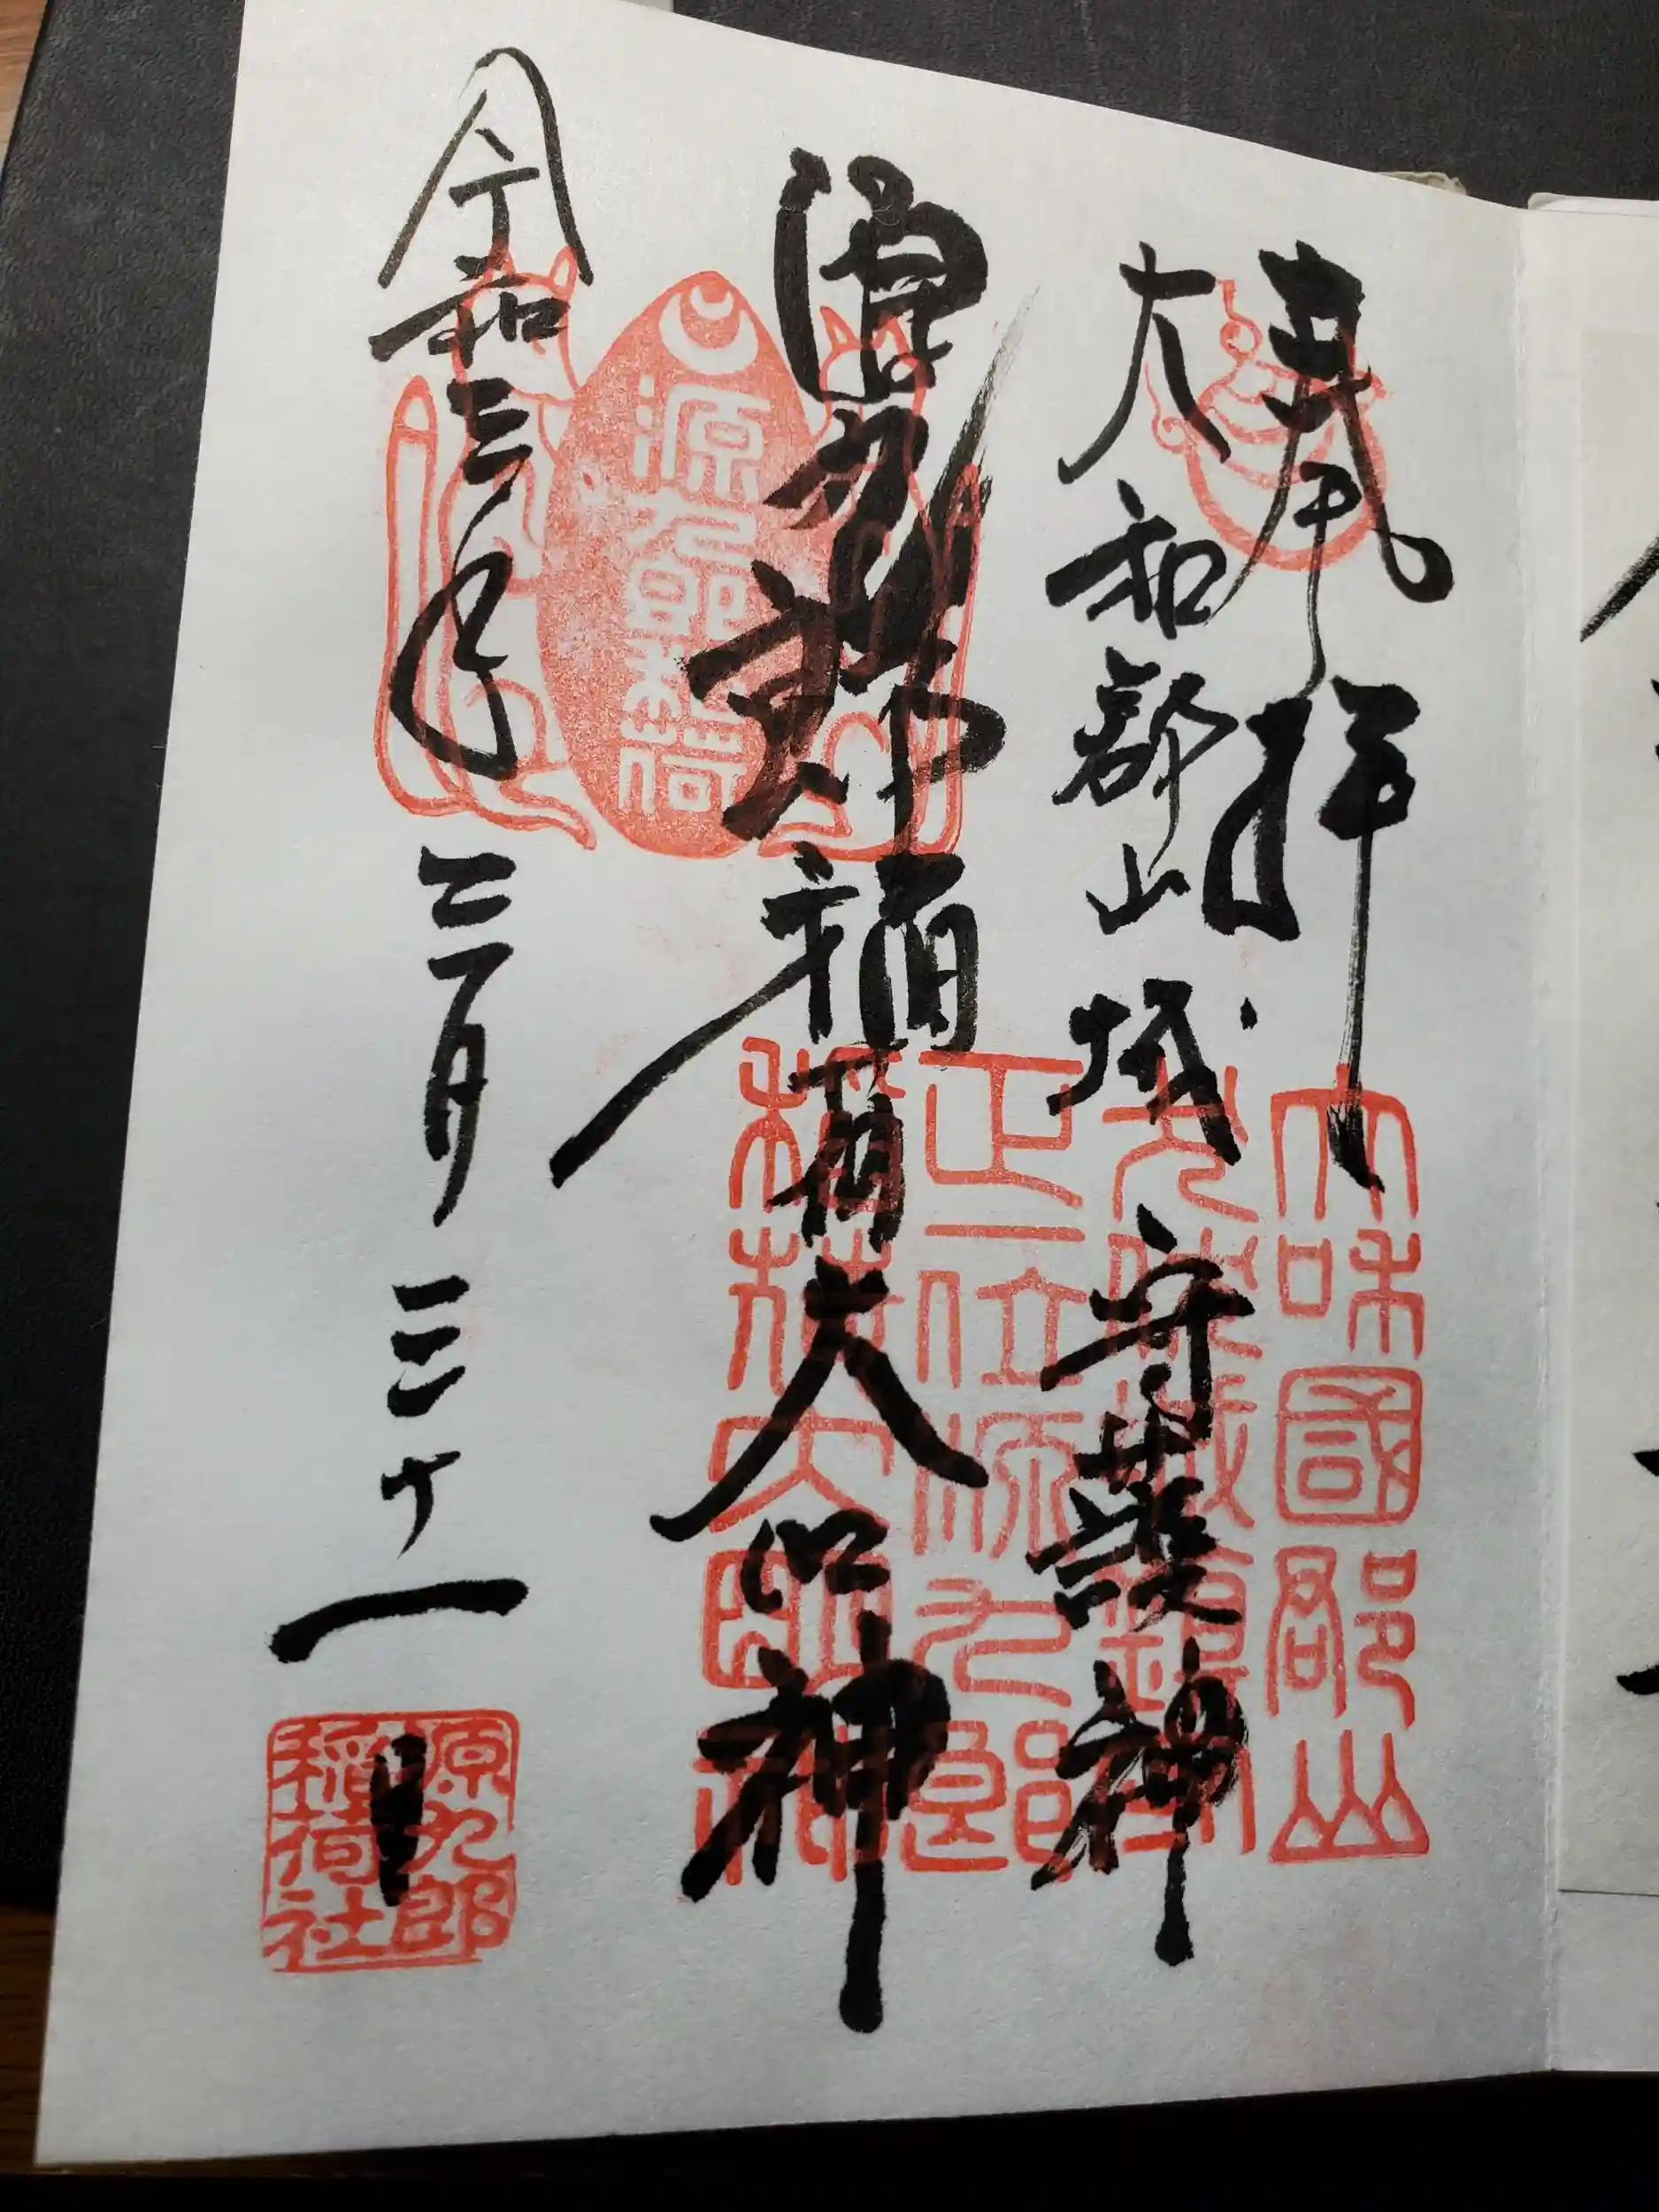 奉拝
大和郡山城守護神
源九郎稲荷大明神
令和三年三月三十一日
源九郎稲荷
大和國郡山
正一位源九郎
稲荷大明神
源九郎稲荷社